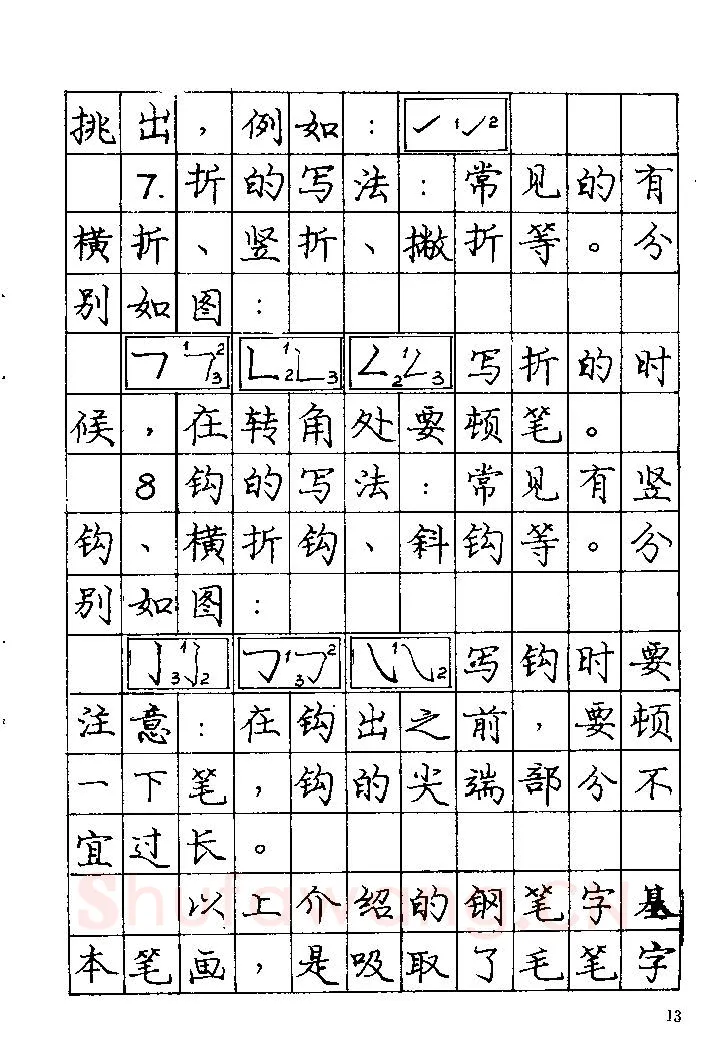 挑出，例如：1 2
7.折的写法：常见的有
横折、竖折、撇折等。分
别如图：
1 2 3 1 2 3 1 2 3 写折的时
候，在转角处要顿笔。
8 钩的写法：常见有竖
钩、横折钩、斜钩等。分
别如图：
1 2 3 1 2 3 1 2 写钩时要
注意：在钩出之前，要顿
一下笔，钩的尖端部分不
宜过长。
Shufawang.CN
以上介绍的钢笔字基
本笔画，是吸取了毛笔字
13